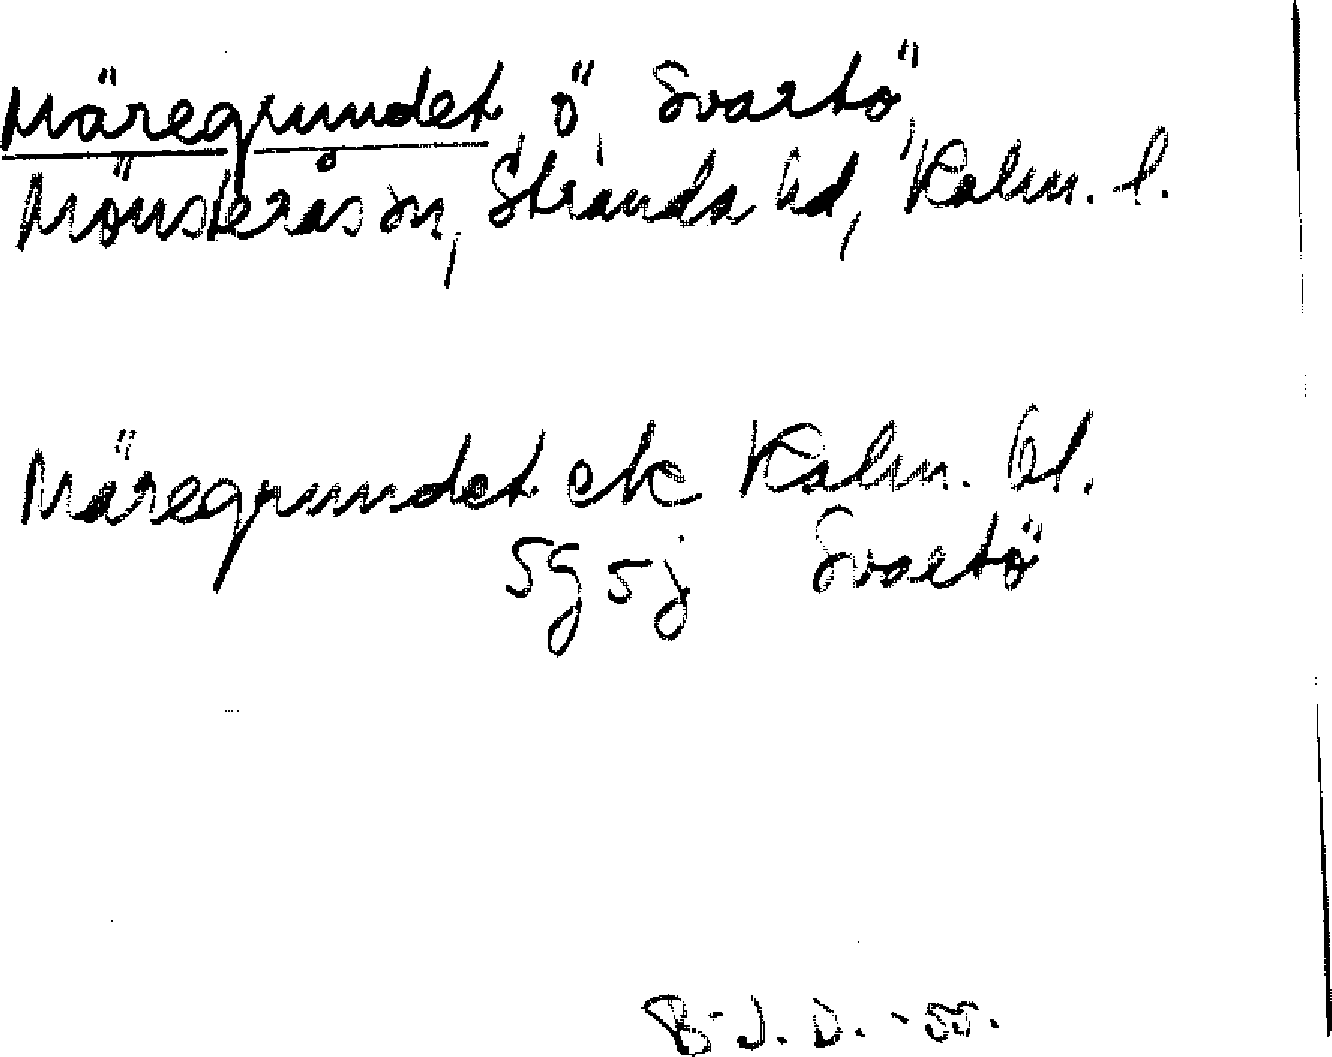 Märegrundet, ö, Svartö,
Mönsterås sn, Stranda hd, Kalm. l.
Märegrundet ek Kalm. bl.
5g5j Svartö
B-J. D. -55.